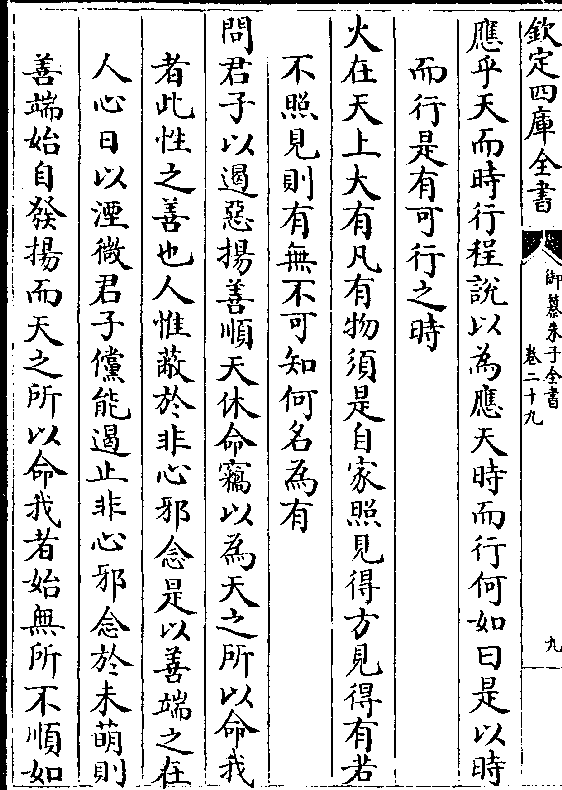 欽定四庫全書
御纂朱子全書
卷二十九
九
應乎天而時行程說以為應天時而行何如曰是以時
而行是有可行之時
火在天上大有凡有物須是自家照見得方見得有若
不照見則有無不可知何名為有
問君子以遏惡揚善順天休命竊以為天之所以命我
者此性之善也人惟蔽於非心邪念是以善端之在
人心日以湮微君子儻能遏止非心邪念於未萌則
善端始自發揚而天之所以命我者始無所不順如